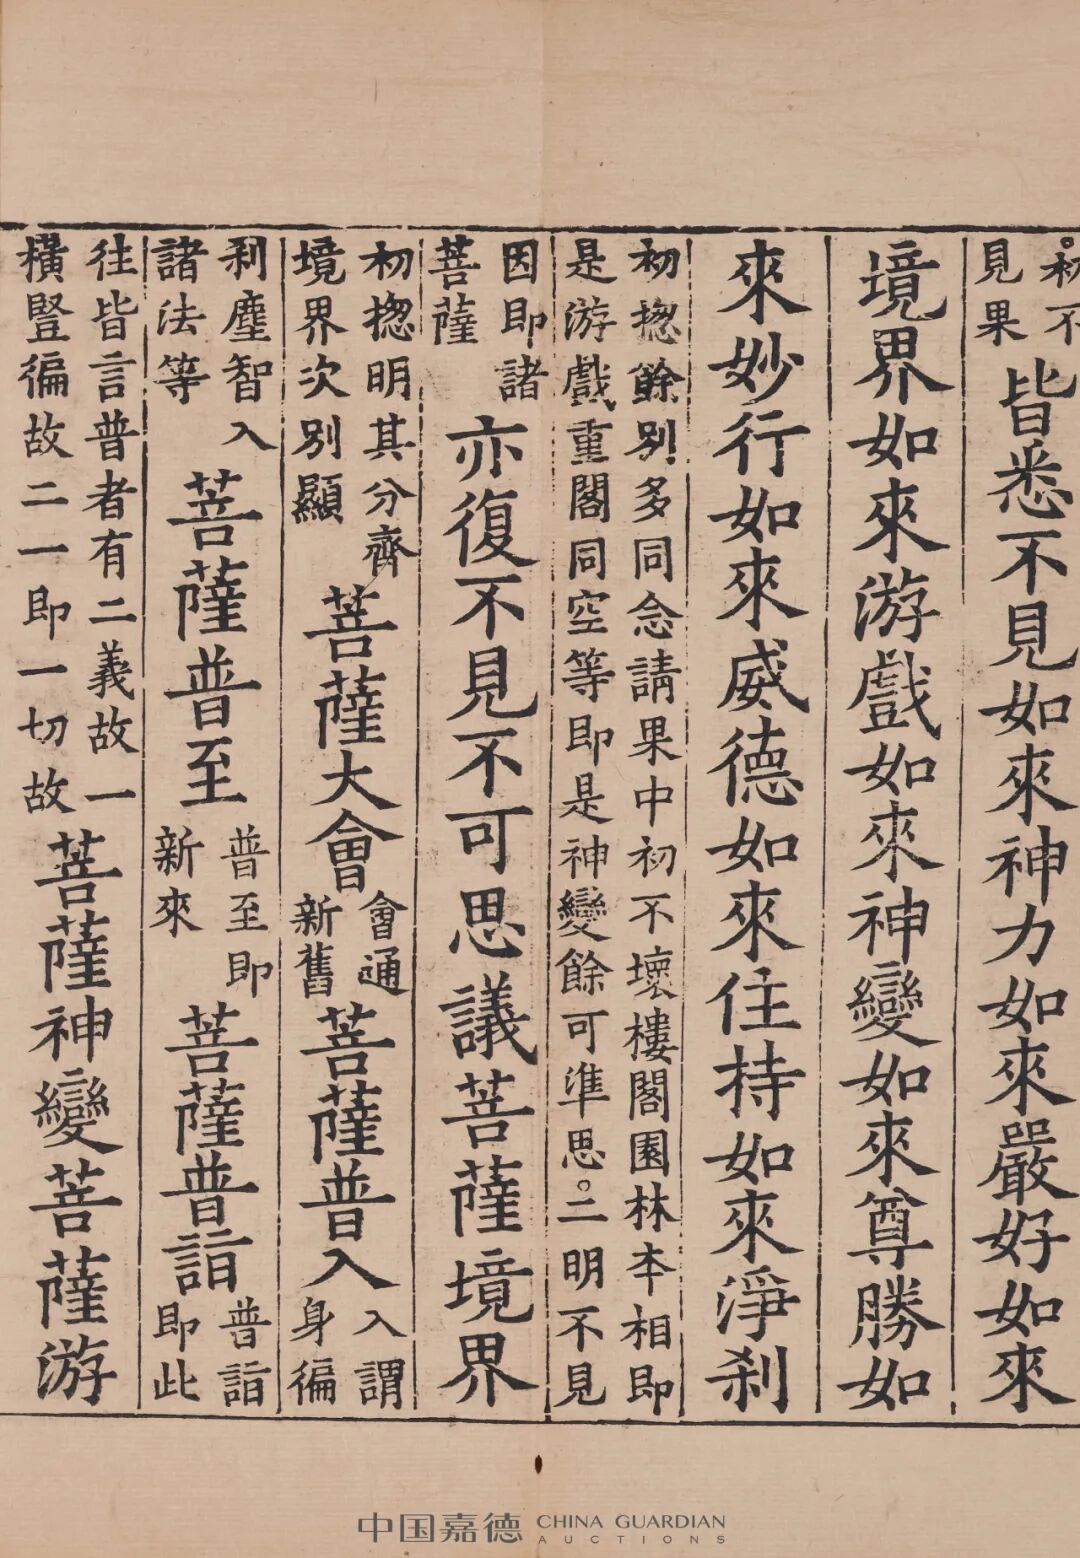 初不
見果
皆悉不見如來神力如來嚴好如來
境界如來游戲如來神變如來尊勝如
來妙行如來威德如來住持如來淨刹
初揔餘别多同念請果中初不壞樓閣園林本相即
是游戲重閣同空等即是神變餘可準思。二明不見
因即諸
菩薩
亦復不見不可思議菩薩境界
初揔明其分齊
境界次別顯
菩薩大會
會通
新舊
菩薩普入
入謂
身徧
刹塵智入
諸法等
菩薩普至
普至即
新來
菩薩普詣
普詣
即此
往皆言普者有二義故一
橫豎徧故二一即一切故
菩薩神變菩薩游
中国嘉德 CHINA GUARDIAN
AUCTIONS